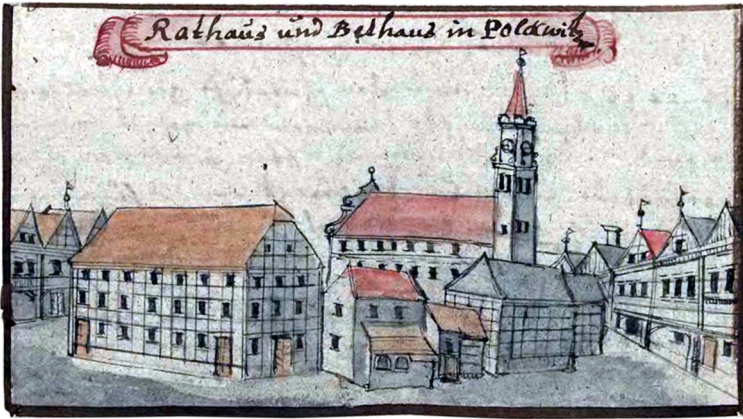 Rathaus und Bethaus in Polckwitz.